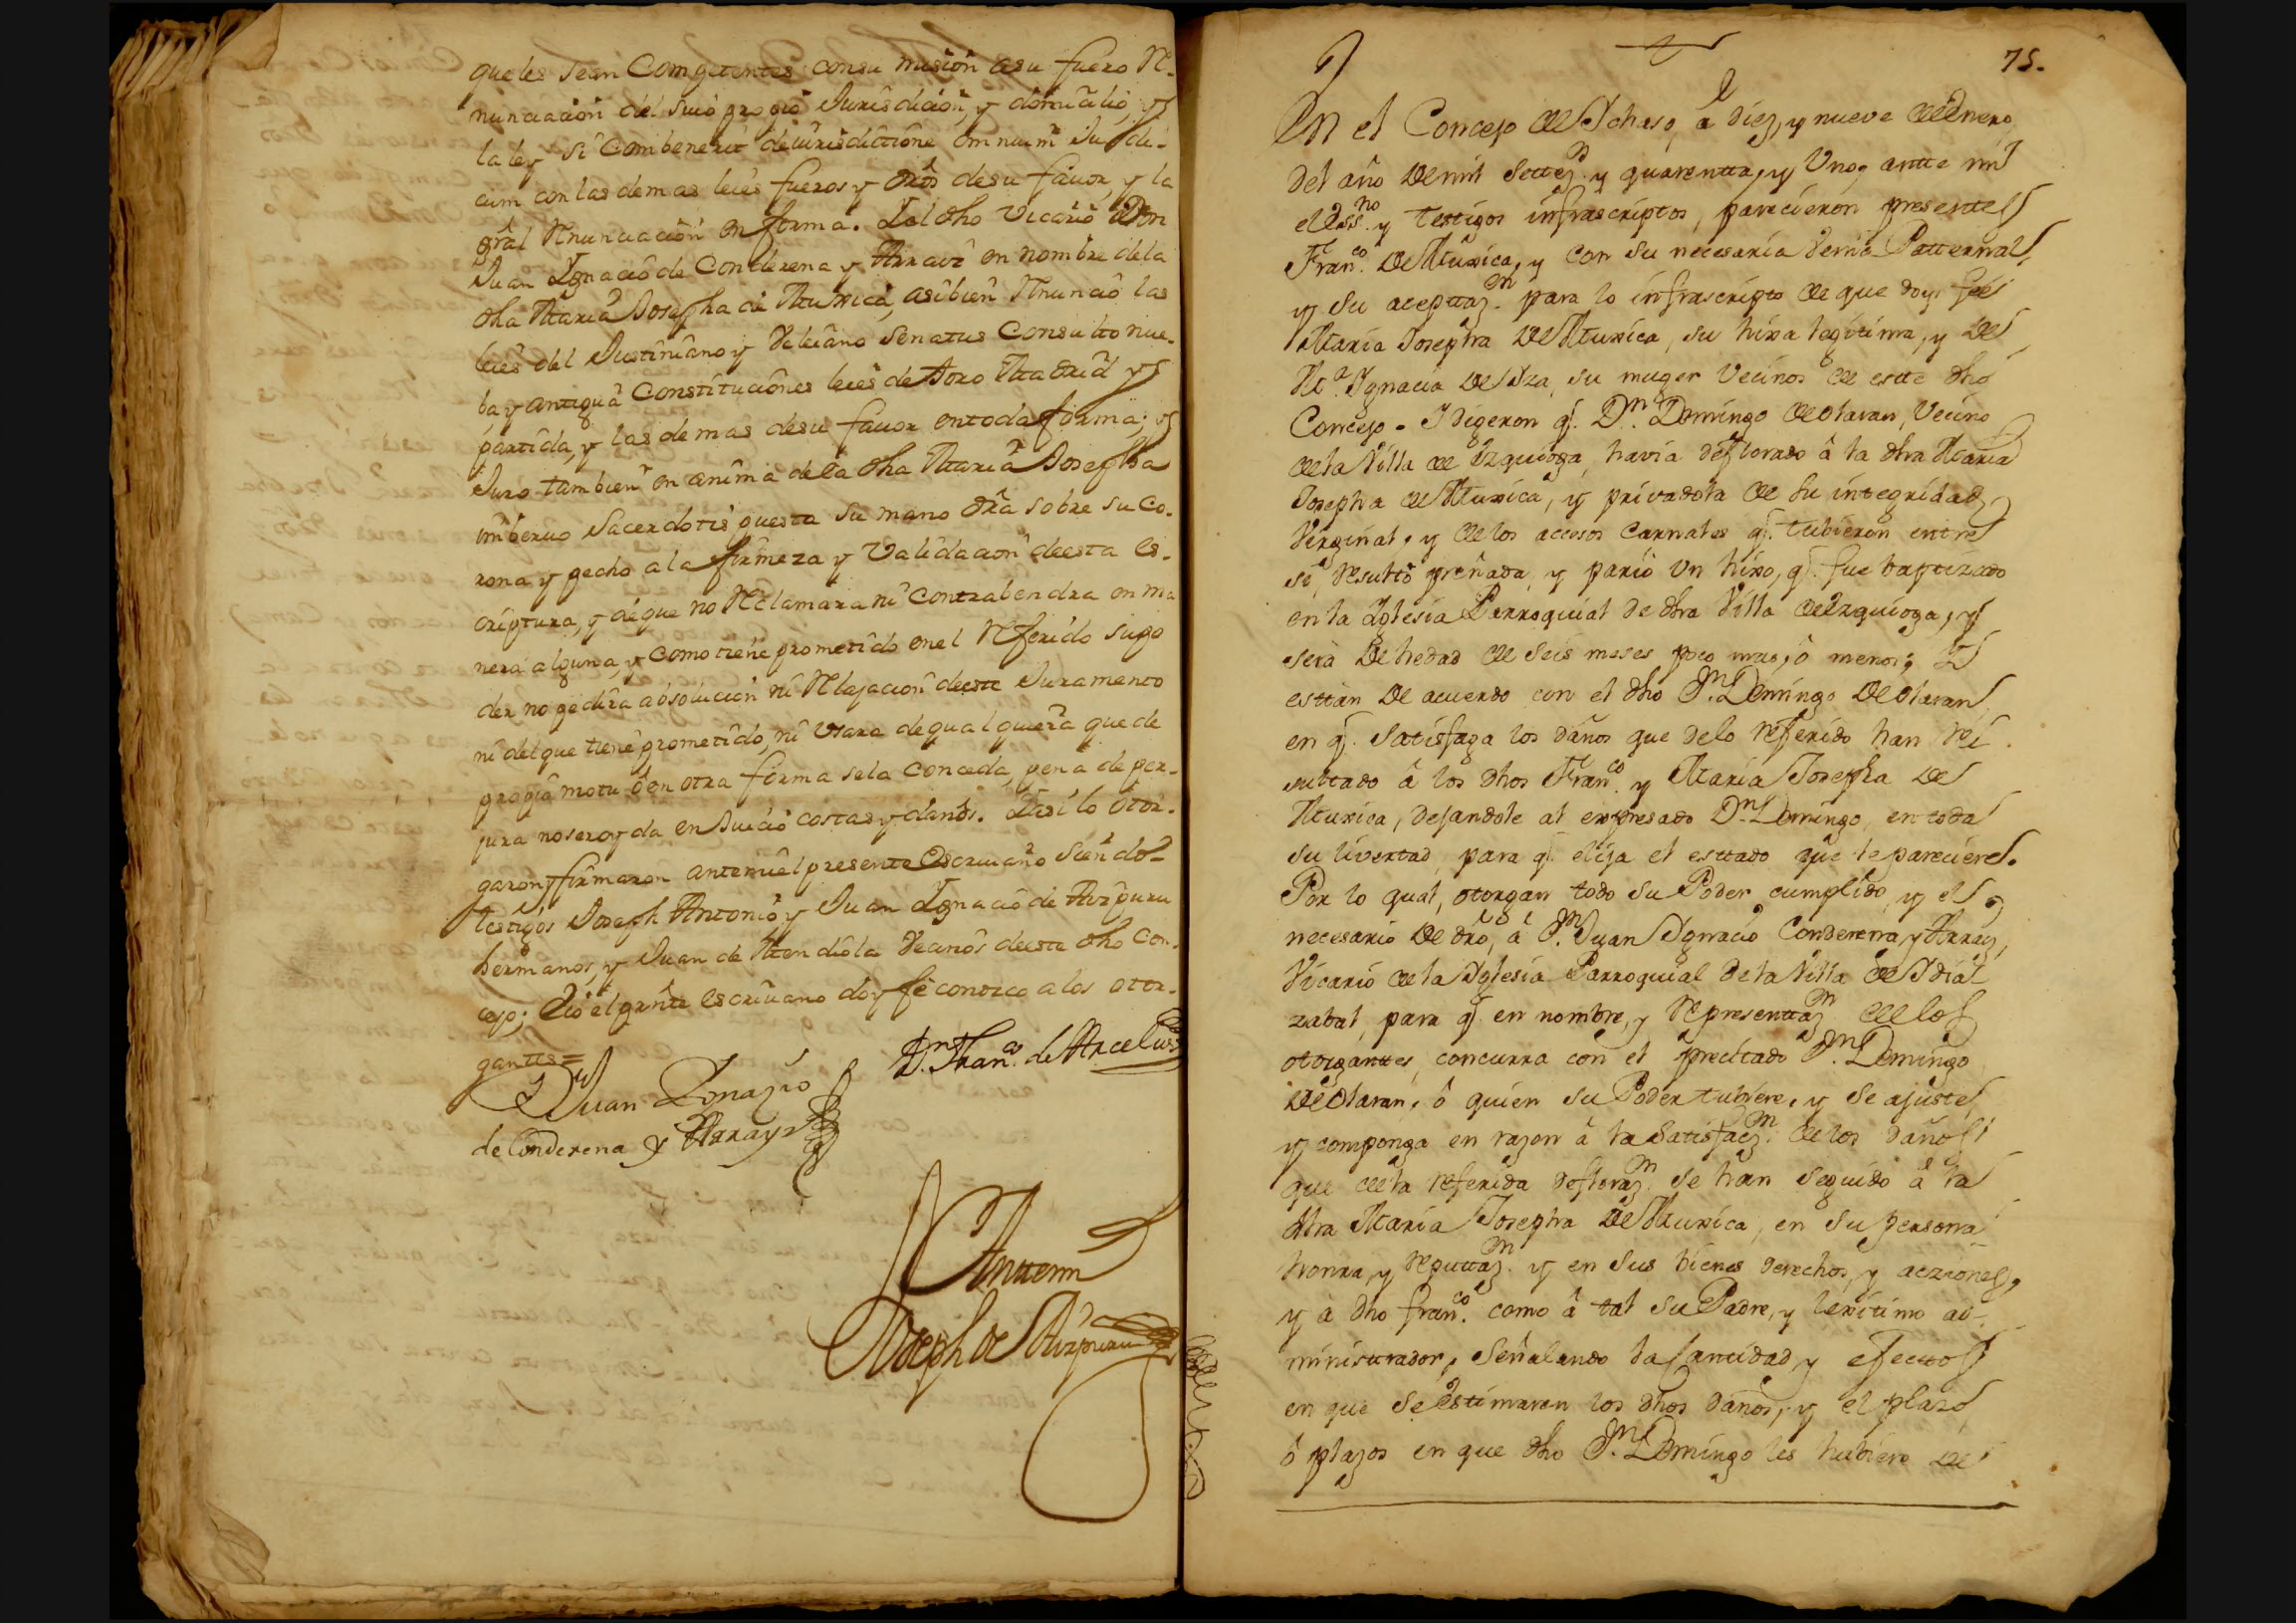 que les sean Competentes con su misión a su fuero Re-
nunciación del suio propio Jurisdición, y domicilio, y
la ley si Combenerit de iurisdictione omnium Judi-
cum con las demas leies fueros y dros de su fauor, y la
gral Renunciación en forma. Y el dho Vicario Don
Juan Ygnacio de Conderena y Arraiz en nombre de la
dha Maria Josepha de Muxica, asi bien Renunció las
leies del Justiniano y Veleiano Senatus Consulto nue-
ba y antigua Constituciones leies de Toro Madrid y
partida, y las demas de su fauor en toda forma; y
Juro tambien en anima de la dha Maria Josepha
imberuo Sacerdotis puesta su mano dra sobre su Co-
rona y pecho a la firmeza y Validacion de esta es-
criptura, y de que no Reclamara ni contrabendra en ma
nera alguna, y como tiene prometido en el Referido supo
der no pedira absolucion ni Relajacion de este Juramento
ni del que tiene prometido, ni Vsara de qualquiera que de
propio motu ô en otra forma se la conceda, pena de per-
jura no ser oyda en Juicio costas y daños. Y asi lo otor-
garon y firmaron ante mi el presente Escriuano siendo
testigos Joseph Antonio y Juan Ygnacio de Aizpuru
hermanos, y Juan de Mendiola Vecinos de este dho Con-
cejo; E io el prnte escriuano doy fe conozco a los otor-
gantes=
Dn Fran.co de Arcelus
D Juan Ignazio
de Conderena y Array
Ante mi
Joseph de Aizpuru
75.
En el Concejo de Ichaso, â diez, y nueve de Enero
del año de mil Settez.s y quarentta, y Uno, antte mi
el Ess.no y Testigos infrascriptos, parecieron presentes
Fran.co de Muxica, y con su necesaria Venia Patternal,
y su aceptaz.on para lo infrascripto de que doy fee
Maria Josepha de Muxica, su hixa legitima, y de
M.a Ygnacia de Iza, su muger Vecinos de estte dho
Concejo - I digeron q.e D.n Domingo de Olaran, Vecino
de la Villa de Ezquioga, havia desflorado â la dha Maria
Josepha de Muxica, y privadola de su integridad
Verginal, y de los accesos carnales q.e tubieron entre
si, resultó preñada, y parió un hixo, q.e fue baptizado
en la Yglesia Parroquial de dha Villa de Ezquioga, y
será de hedad de seis meses poco mas, ô menos; y
esttan de acuerdo con el dho D.n Domingo de Olaran
en q.e satisfaga los daños que de lo referido han re
sultado â los dhos Fran.co y Maria Josepha de
Muxica, dejandole al expresado D.n Domingo, en toda
su livertad, para q.e elija el esttado que le pareciere.
Por lo qual, otorgan todo su Poder cumplido, y el
necesario de dro, â D.n Juan Ygnacio Conderena, y Array,
Vicario de la Yglesia Parroquial de la Villa de Idiaz
zabal, para q.e en nombre, y representtaz.on de los
otorganttes, concurra con el precitado D.n Domingo
de Olaran, ô quien su Poder tubiere, y se ajuste,
y componga en razon â la satisfacz.on de los daños
que de la referida desfloraz.on se han seguido â la
dha Maria Josepha de Muxica, en su persona
honra, y reputtaz.on y en sus bienes derechos, y acziones,
y â dho Fran.co como â tal su Padre, y lexitimo ad-
ministrador, señalando la cantidad, y efectos
en que se estimaren los dhos daños, y el plazo
ô plazos en que dho D.n Domingo les hubiere de